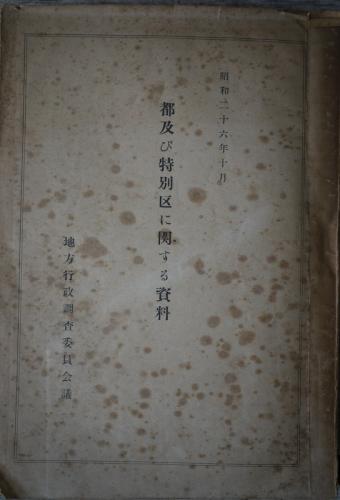 昭和二十六年十月
都及び特別区に関する資料
地方行政調査委員会議